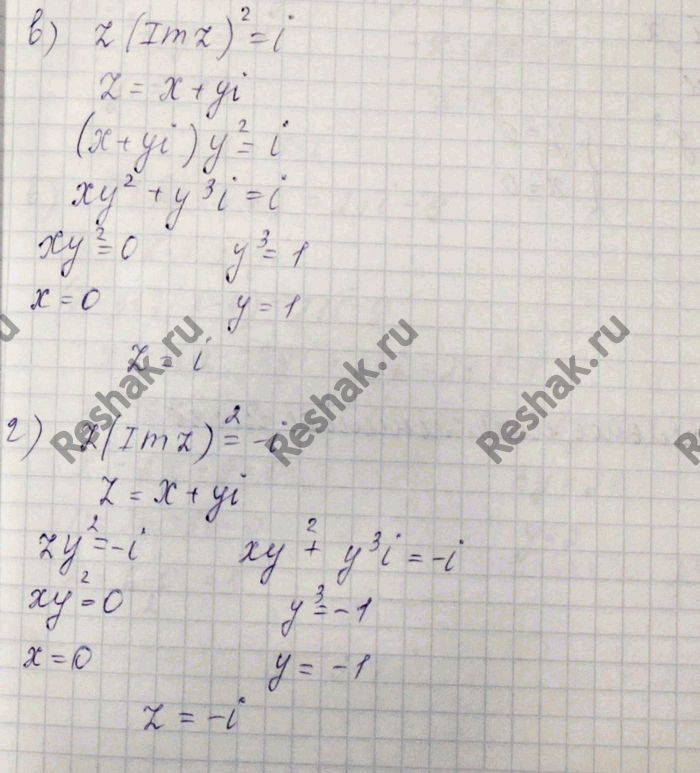 в) z (Im z)² = i
z = x + yi
(x + yi) y² = i
xy² + y³i = i
xy² = 0 y³ = 1
x = 0 y = 1
z = i
Reshak.ru Reshak.ru Reshak.ru
г) z (Im z)² = -i
z = x + yi
zy² = -i xy² + y³i = -i
xy² = 0 y³ = -1
x = 0 y = -1
z = -i